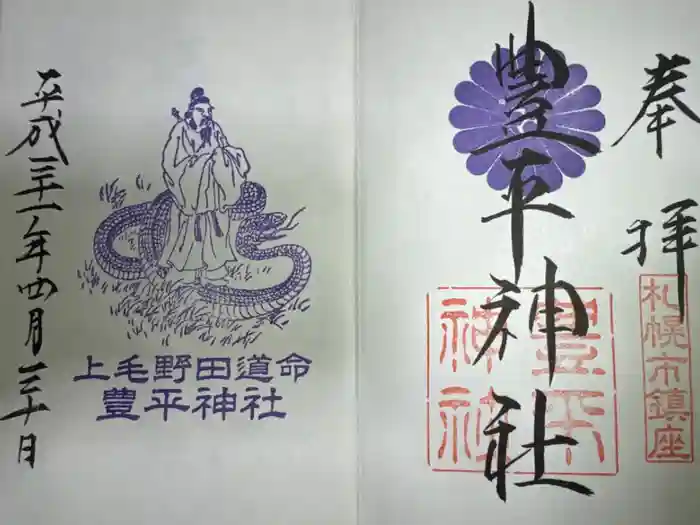 奉拝
札幌市鎮座
豊平神社
豊平神社
上毛野田道命
豊平神社
平成三十一年四月三十日